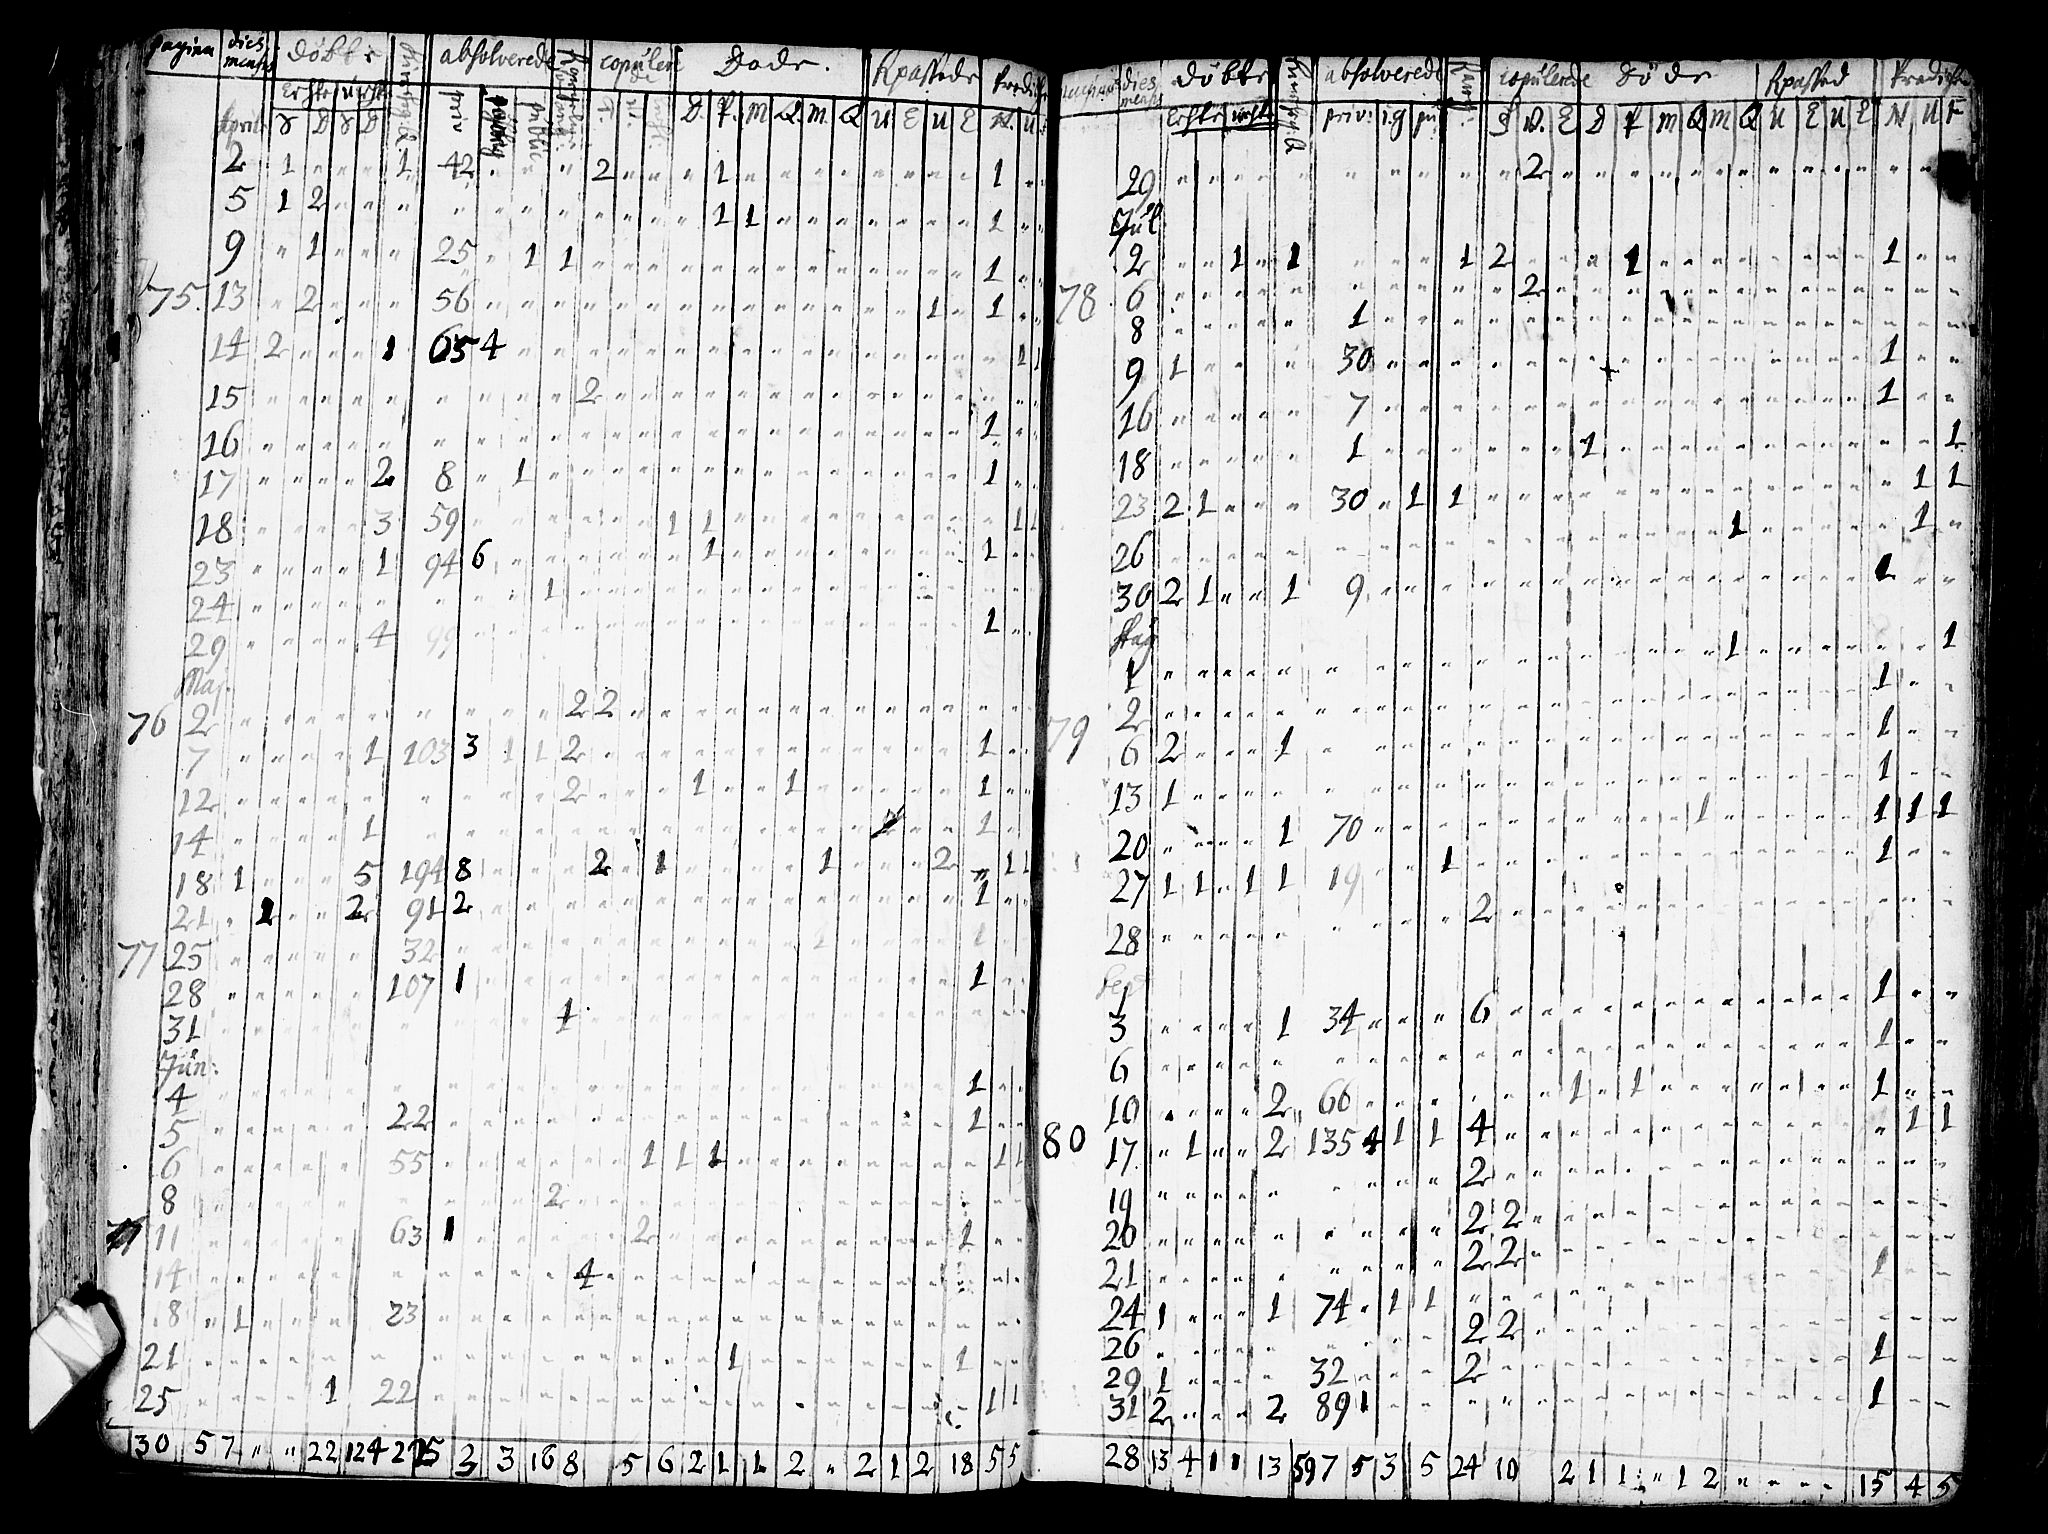 pagina dies mensis døbte absolverede copulerede Døde. Apassede Prædik
Echte Uecht priv public
April S D S D D. P. M Q. M. Q U E U E N. U.
2 1 " " " 1 42 " " " 2 " " " 1 " " " " " " " " " 1 " "
5 1 2 " " " " " " " " " " " 1 1 " " " " " " " 1 " "
9 " 1 " " " 25 " 1 1 " " " " " " " " " " " " " 1 " "
75. 13 " 2 " " " 56 " " " " " " " " " " " " " 1 " 1 " "
14 2 " " " 1 65 4 " " " " " " " " " " " " " " " " 1 1
15 " " " " " " " " " 2 " " " " " " " " " " " " " " "
16 " " " " " " " " " " " " " " " " " " " " " 1 " "
17 " " " " 2 8 " 1 " " " " " " " " " " " " " 1 " "
18 " " " " 3 59 " " " " " " 1 1 " " " " " " " " " 1 1
23 " " " " 1 94 6 " " " " " " 1 " " " " " " " " 1 " "
24 " " " " " " " " 1 " " " " " " " " " " " " " " "
29 " " " " 4 99 " " " " " " " " " " " " " " " 1 " "
Maj.
76 2 " " " " " " " " " 2 2 " " " " " " " " " " " " " "
7 " " " " 1 103 3 1 1 2 " " " " " " " " " " " " 1 " "
12 " " " " " " " " " 2 " " " 1 " " 1 " " " " " 1 " "
14 " " " " 1 " " " " " " " " " " " " " " " " 1 " "
18 1 " " " 5 194 8 " " " 2 " 1 " " " " 1 " " " 2 " 1 1
21 " 1 " " 2 91 2 " " " " " " " " " " " " " " " 1 " "
77 25 " " " " " 32 " " " " " " " " " " " 1 " " " " 1 " "
28 " " " " " 107 1 " " " " " " " " " " " " " " " 1 " "
31 " " " " " " " " " 1 " " " " " " " " " " " " " " "
Jun:
4 " " " " " " " " " " " " " " " " " " " " " 1 " "
5 " " " " " 22 " " " " " " " " " " " " " " " 1 " "
6 " " " " " 55 " " " " " " 1 1 1 " " " " " " " " 1 1
8 " " " " " " " " " 2 " " " " " " " " " " " " " "
11 " " " " " 63 1 " " " " " 2 " " " " " " " " " 1 " "
14 " " " " " " " " " 4 " " " " " " " " " " " " " "
8 " 1 " " " 23 " " " " " " " " " " " " " " " " " "
21 " " " " " " " " " " " " " 1 " " " " " " " 1 " "
25 " " " 1 22 " " " " " " " " " " " " " " " " 1 1
30 5 7 " " 22 124 3 3 16 8 5 6 2 1 1 2 " 2 1 2 18 5 5
dies mens døbte absolverede copulerede Døde Apassed Prædik
Echte uecht priv: i.g pu: S D. E D P M Q M Q U E U E N U F
29 " " " " " " " " " " " 2 " " " " " " " " " " " " " "
Jul
2 " " 1 " 1 " " " " 1 2 " " " 1 " " " " " " " " 1 " "
78 6 " " " " " " " " " " 2 " " " " " " " " " " " " " "
8 " " " " " 1 " " " " " " " " " " " " " " " " " " "
9 1 " " " " 30 " " " " " " " " " " " " " " " " 1 " "
16 " " " " " 7 " " " " " " " " " " " " " " " " 1 " "
18 " " " " " 1 " " " " " " 1 " " " " " " " " " " " 1
23 2 1 " " " 30 " 1 1 " " " " " " " " " " " " " " 1 1
26 " " " " " " " " " " " " " " " " 1 " " " " " " 1 "
30 2 1 " " 1 9 " " " " " " " " " " " " " " " " 1 " "
Aug
1 " " " " " " " " " " " " " " " " 1 " " " " " " " 1
2 " " " " " " " " " " " " " " " " " " " " " 1 " "
79 6 2 " " " 1 " " " " " " " " " " " " " " " " " 1 " "
13 1 " " " " " " " " " " " " " " " " " " " " " 1 " "
20 " " " " 1 70 " " " " " " " " " " 1 " " " " " 1 1 1
27 1 1 " 1 1 19 " " 1 " " " " " " " " " " " " " 1 " "
28 " " " " " " " " " 2 " " " " " " " " " " " " " " "
Sept
3 " " " " 1 34 " " " 6 " " " " " " " " " " " " 1 " "
6 " " " " " " " " " " " " " " " " " " " " " 1 " "
10 " " " " 2 66 " " " " " " 1 " 1 " " " " " " " 1 " "
80 17. " 1 " " 2 135 4 1 1 4 " " " " " " " " " " " " " 1 1
19 " " " " " " " " " 2 " " " " " " " " " " " " " " "
20 " " " " " " " " " 2 2 " " " " " " " " " " " " " "
21 " " " " " " " " " 2 2 " " " " " " " " " " " 1 " "
24 1 " " " 1 74 " 1 1 " " " " " " " " " " " " " " " "
26 " " " " " " " " " 2 2 " " " " " " " " " " " 1 " "
29 1 " " " " 32 " " " 2 " " " " " " " " " " " " " " "
31 2 " " " 2 89 1 " " " " " " " " " " " " " " " 1 " "
28 13 4 1 1 13 597 5 3 5 24 10 2 1 1 " 1 2 " " " " 15 4 5